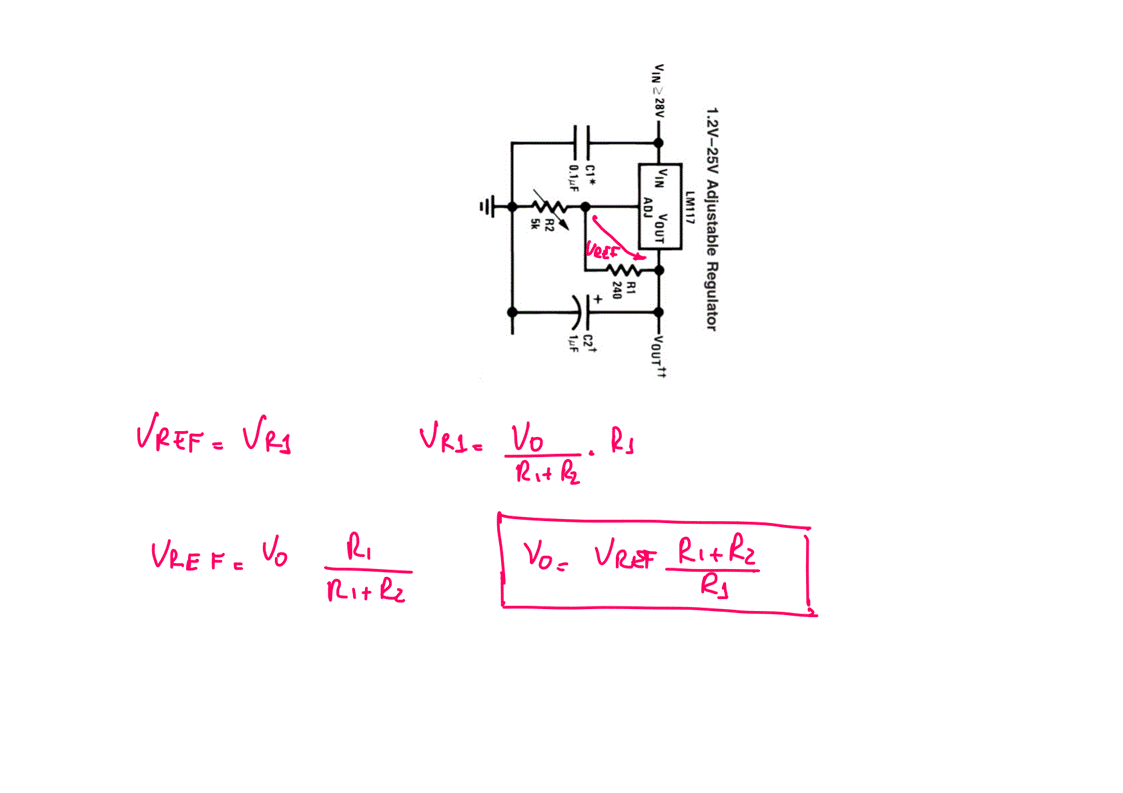 1.2V–25V Adjustable Regulator
LM117
VIN ≥ 28V
VIN
VOUT
ADJ
VOUT††
C1*
0.1μF
R2
5k
VREF
R1
240
+
C2†
1μF
VREF = VR1
VR1 = VO / (R1 + R2) · R1
VREF = VO R1 / (R1 + R2)
VO = VREF (R1 + R2) / R1